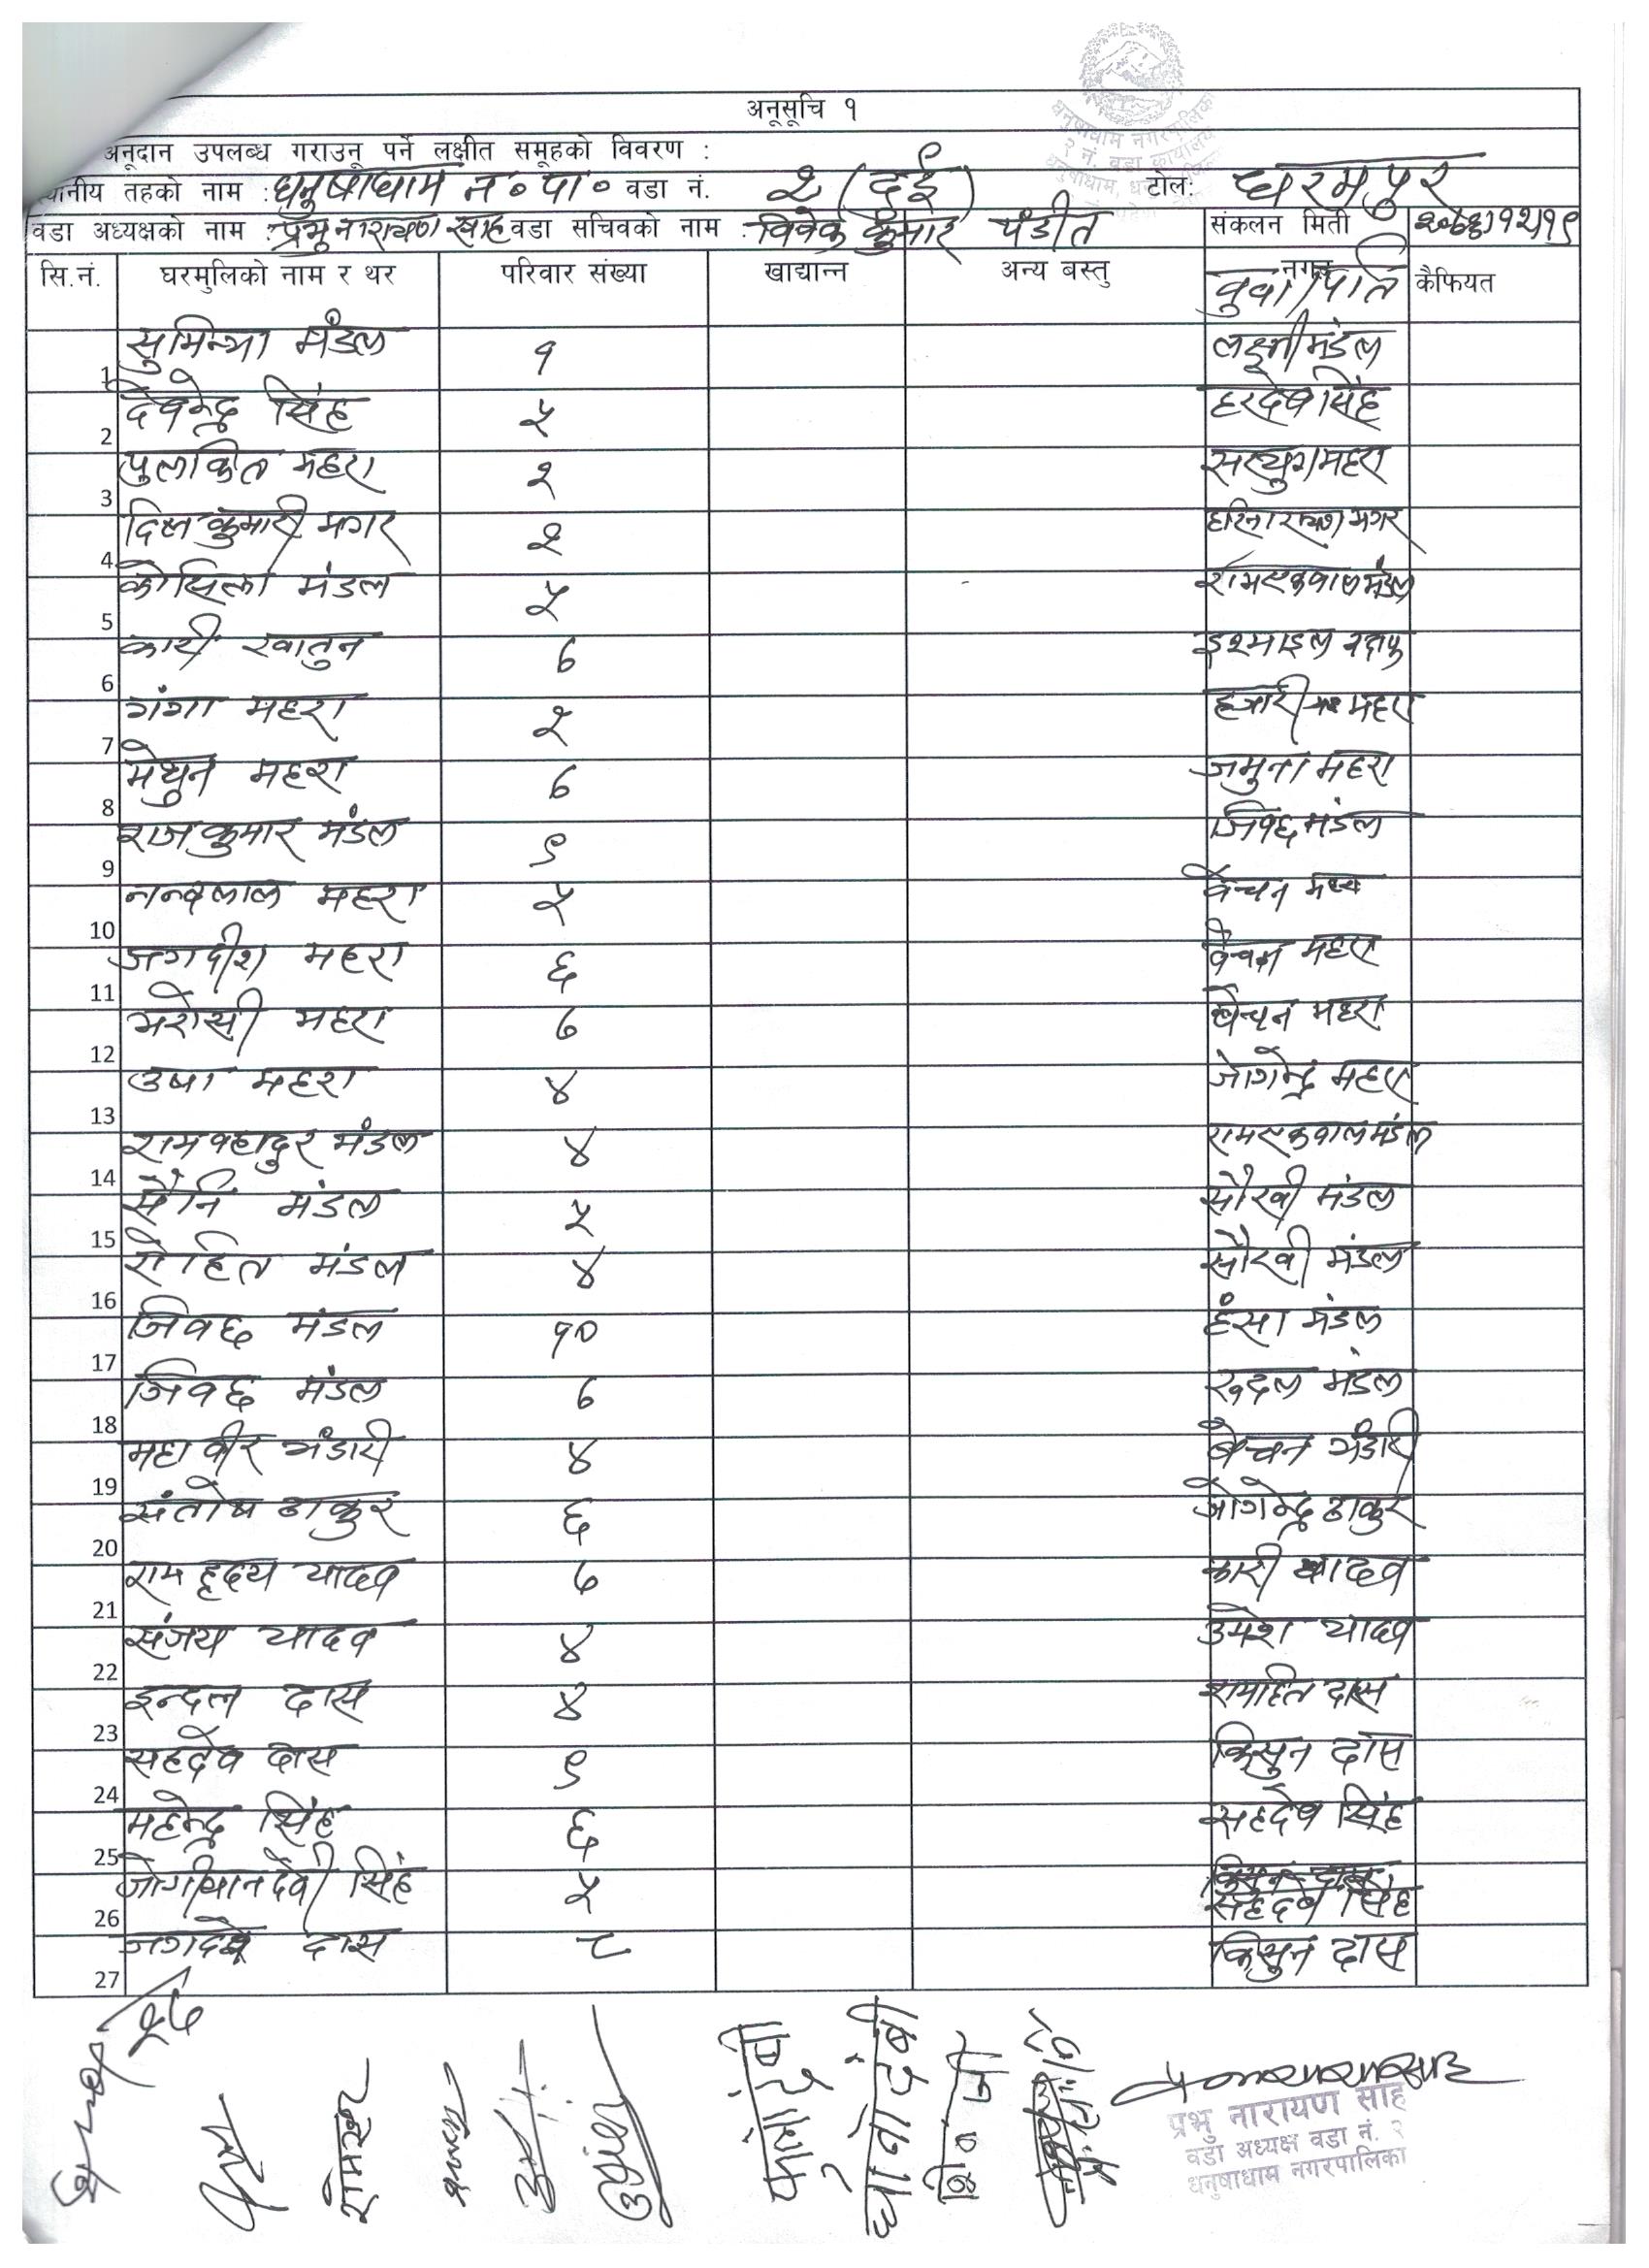 अनूसूचि १
अनूदान उपलब्ध गराउनू पर्ने लक्षीत समूहको विवरण :
स्थानीय तहको नाम : धनुषाधाम न०पा० वडा नं. २ (दुई) टोल: धरमपुर
वडा अध्यक्षको नाम : प्रभु नारायण साह वडा सचिवको नाम : विवेक कुमार पंडीत संकलन मिती
सि.नं. घरमुलिको नाम र थर परिवार संख्या खाद्यान्न अन्य बस्तु नगद कैफियत
बुवा/पति
1 सुमित्रा मंडल १ लक्ष्मी मंडल
2 देवेन्द्र सिंह ५ हरदेव सिंह
3 पुलकित महरा २ सत्युग महरा
4 दिल कुमारी मगर २ हरिनारायण मगर
5 कौसिला मंडल ५ रामएकवाल मंडल
6 कारी खातुन ७ इस्माइल
7 गंगा महरा २ हजारी महरा
8 मेथुन महरा ७ जमुना महरा
9 राजकुमार मंडल ९ जिवछ मंडल
10 नन्दलाल महरा ५ वेचन महरा
11 जगदीश महरा ६ वेचन महरा
12 भरोसी महरा ७ बेचन महरा
13 उषा महरा ४ जोगेन्द्र महरा
14 रामबहादुर मंडल ४ रामएकवाल मंडल
15 सैनि मंडल ५ सौखी मंडल
16 रोहित मंडल ४ सौखी मंडल
17 जिवछ मंडल १० हंसा मंडल
18 जिवछ मंडल ७ रुदल मंडल
19 महावीर भंडारी ४ बेचन भंडारी
20 संतोष ठाकुर ६ जोगेन्द्र ठाकुर
21 राम हृदय यादव ७ कारी यादव
22 संजय यादव ४ उमेश यादव
23 इन्दल दास ४ रामहित दास
24 सहदेव दास ९ किसुन दास
25 महेन्द्र सिंह ६ सहदेव सिंह
26 देवी सिंह ५ सहदेव सिंह
27 जगदेव दास ८ किसुन दास
प्रभु नारायण साह
वडा अध्यक्ष वडा नं. २
धनुषाधाम नगरपालिका